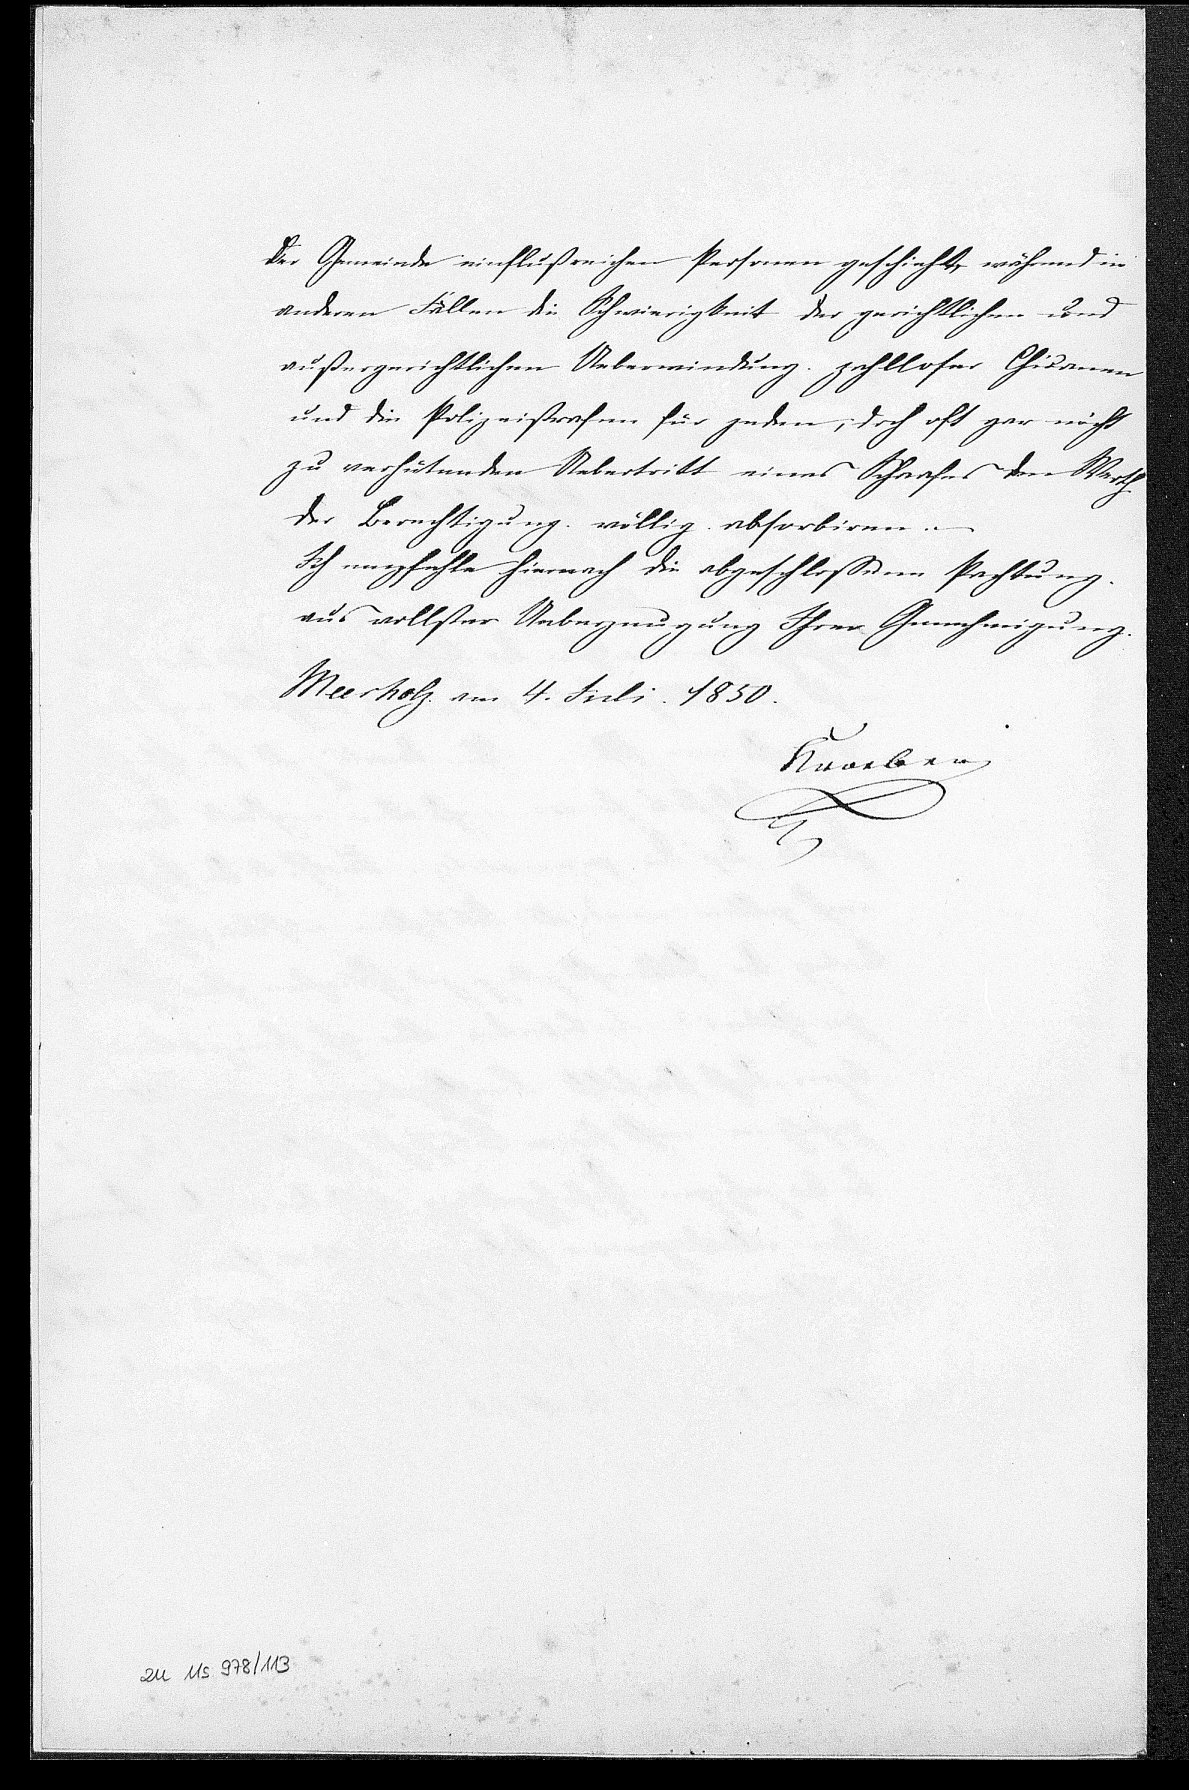 der Gemeinde einflußreichen Personen geschieht, während in
anderen Fällen die Schwierigkeit der gerichtlichen und
außergerichtlichen Ueberwindung zahlloser Chicanen
und die Polizeistrafen für jeden, doch oft gar nicht
zu verhütenden Uebertritt eines Schaafes den Werth
der Berechtigung völlig absorbiren.
Ich empfehle hiernach die abgeschlossene Pachtung
aus vollster Ueberzeugung Ihrer Genehmigung.
Meerholz am 4. Juli. 1850.
Kroeber
zu Ms 978/113